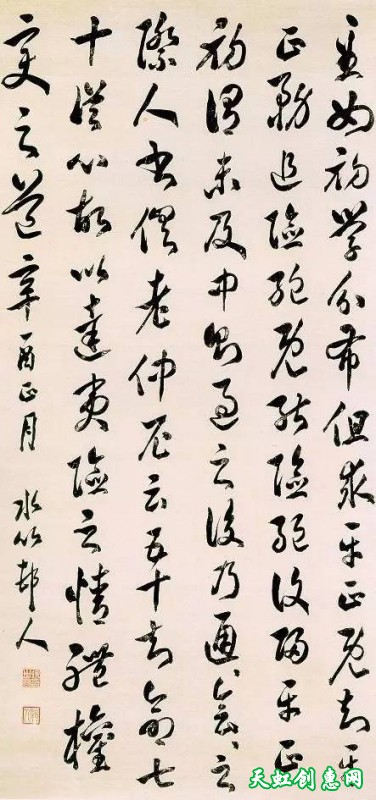 至如初學分布但求平正既知平
正務追險絕既能險絕復歸平正
初謂未及中則過之後乃通、會、之
際人書俱老仲尼云五十知命七
十從心故以達夷險之情體權
變之道 辛酉正月 水竹邨人
天虹创惠网